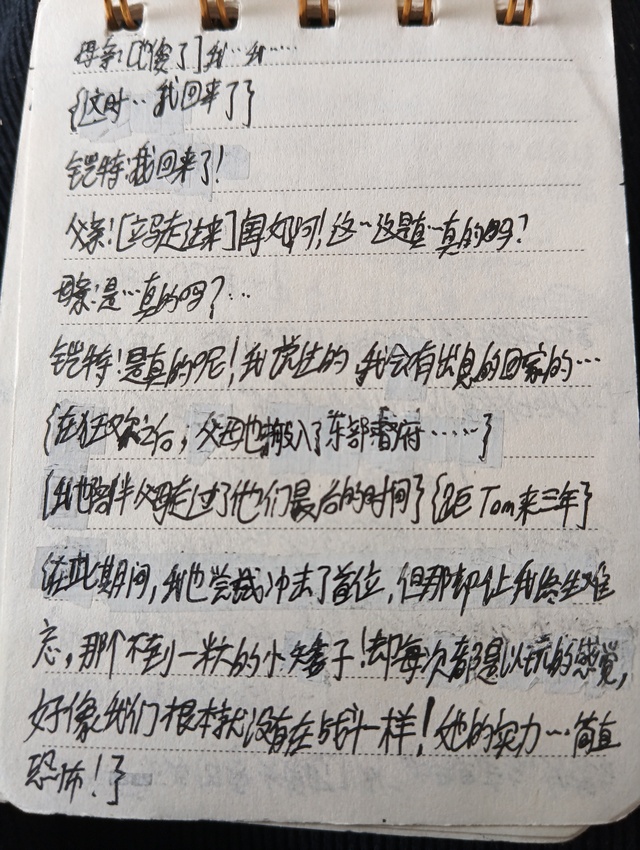 母亲:[也傻了]我…我……
{这时…我回来了}
铠特:我回来了!
父亲![立马走过来]阿!这…这是真…真的吗?
母亲:是…真的吗?…
铠特!是真的呢!我说过的 我会有出息的回家的…
{在狂欢之后,父母也搬入了东部督府……}
{我也陪伴父母走过了他们最后的时间}{距Tom来三年}
{在此期间,我也尝试冲击了首位,但那却让我终生难
忘,那个不到一米大的小矮子!却每次都是以玩的感觉,
好像我们根本就没有在战斗一样!她的实力…简直
恐怖!}